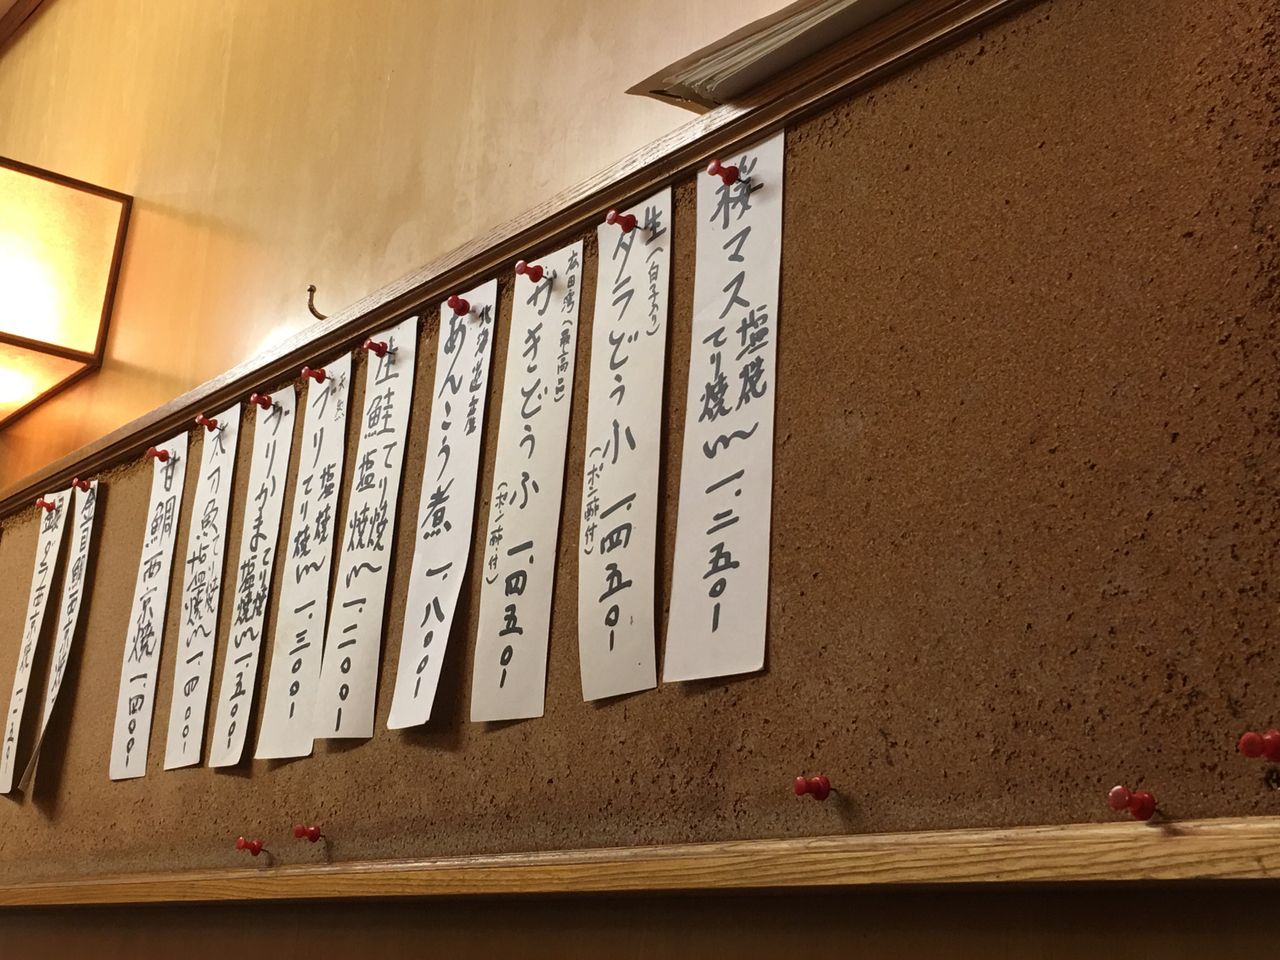 桜マス塩焼てり焼〜一.二五〇-
生(白子入り)
タラどうふ小一.四五〇-
(ポン酢付)
広田湾(最高品)
かきどうふ一.四五〇-
(ポン酢付)
北海道産
あんこう煮一.八〇〇-
生鮭てり焼塩焼〜一.二〇〇-
天然
ブリ塩焼てり焼〜一.三〇〇-
ブリかまてり焼塩焼〜一.五〇〇-
太刀魚てり焼塩焼〜一.四〇〇-
甘鯛西京焼一.四〇〇-
金目鯛
銀ダラ